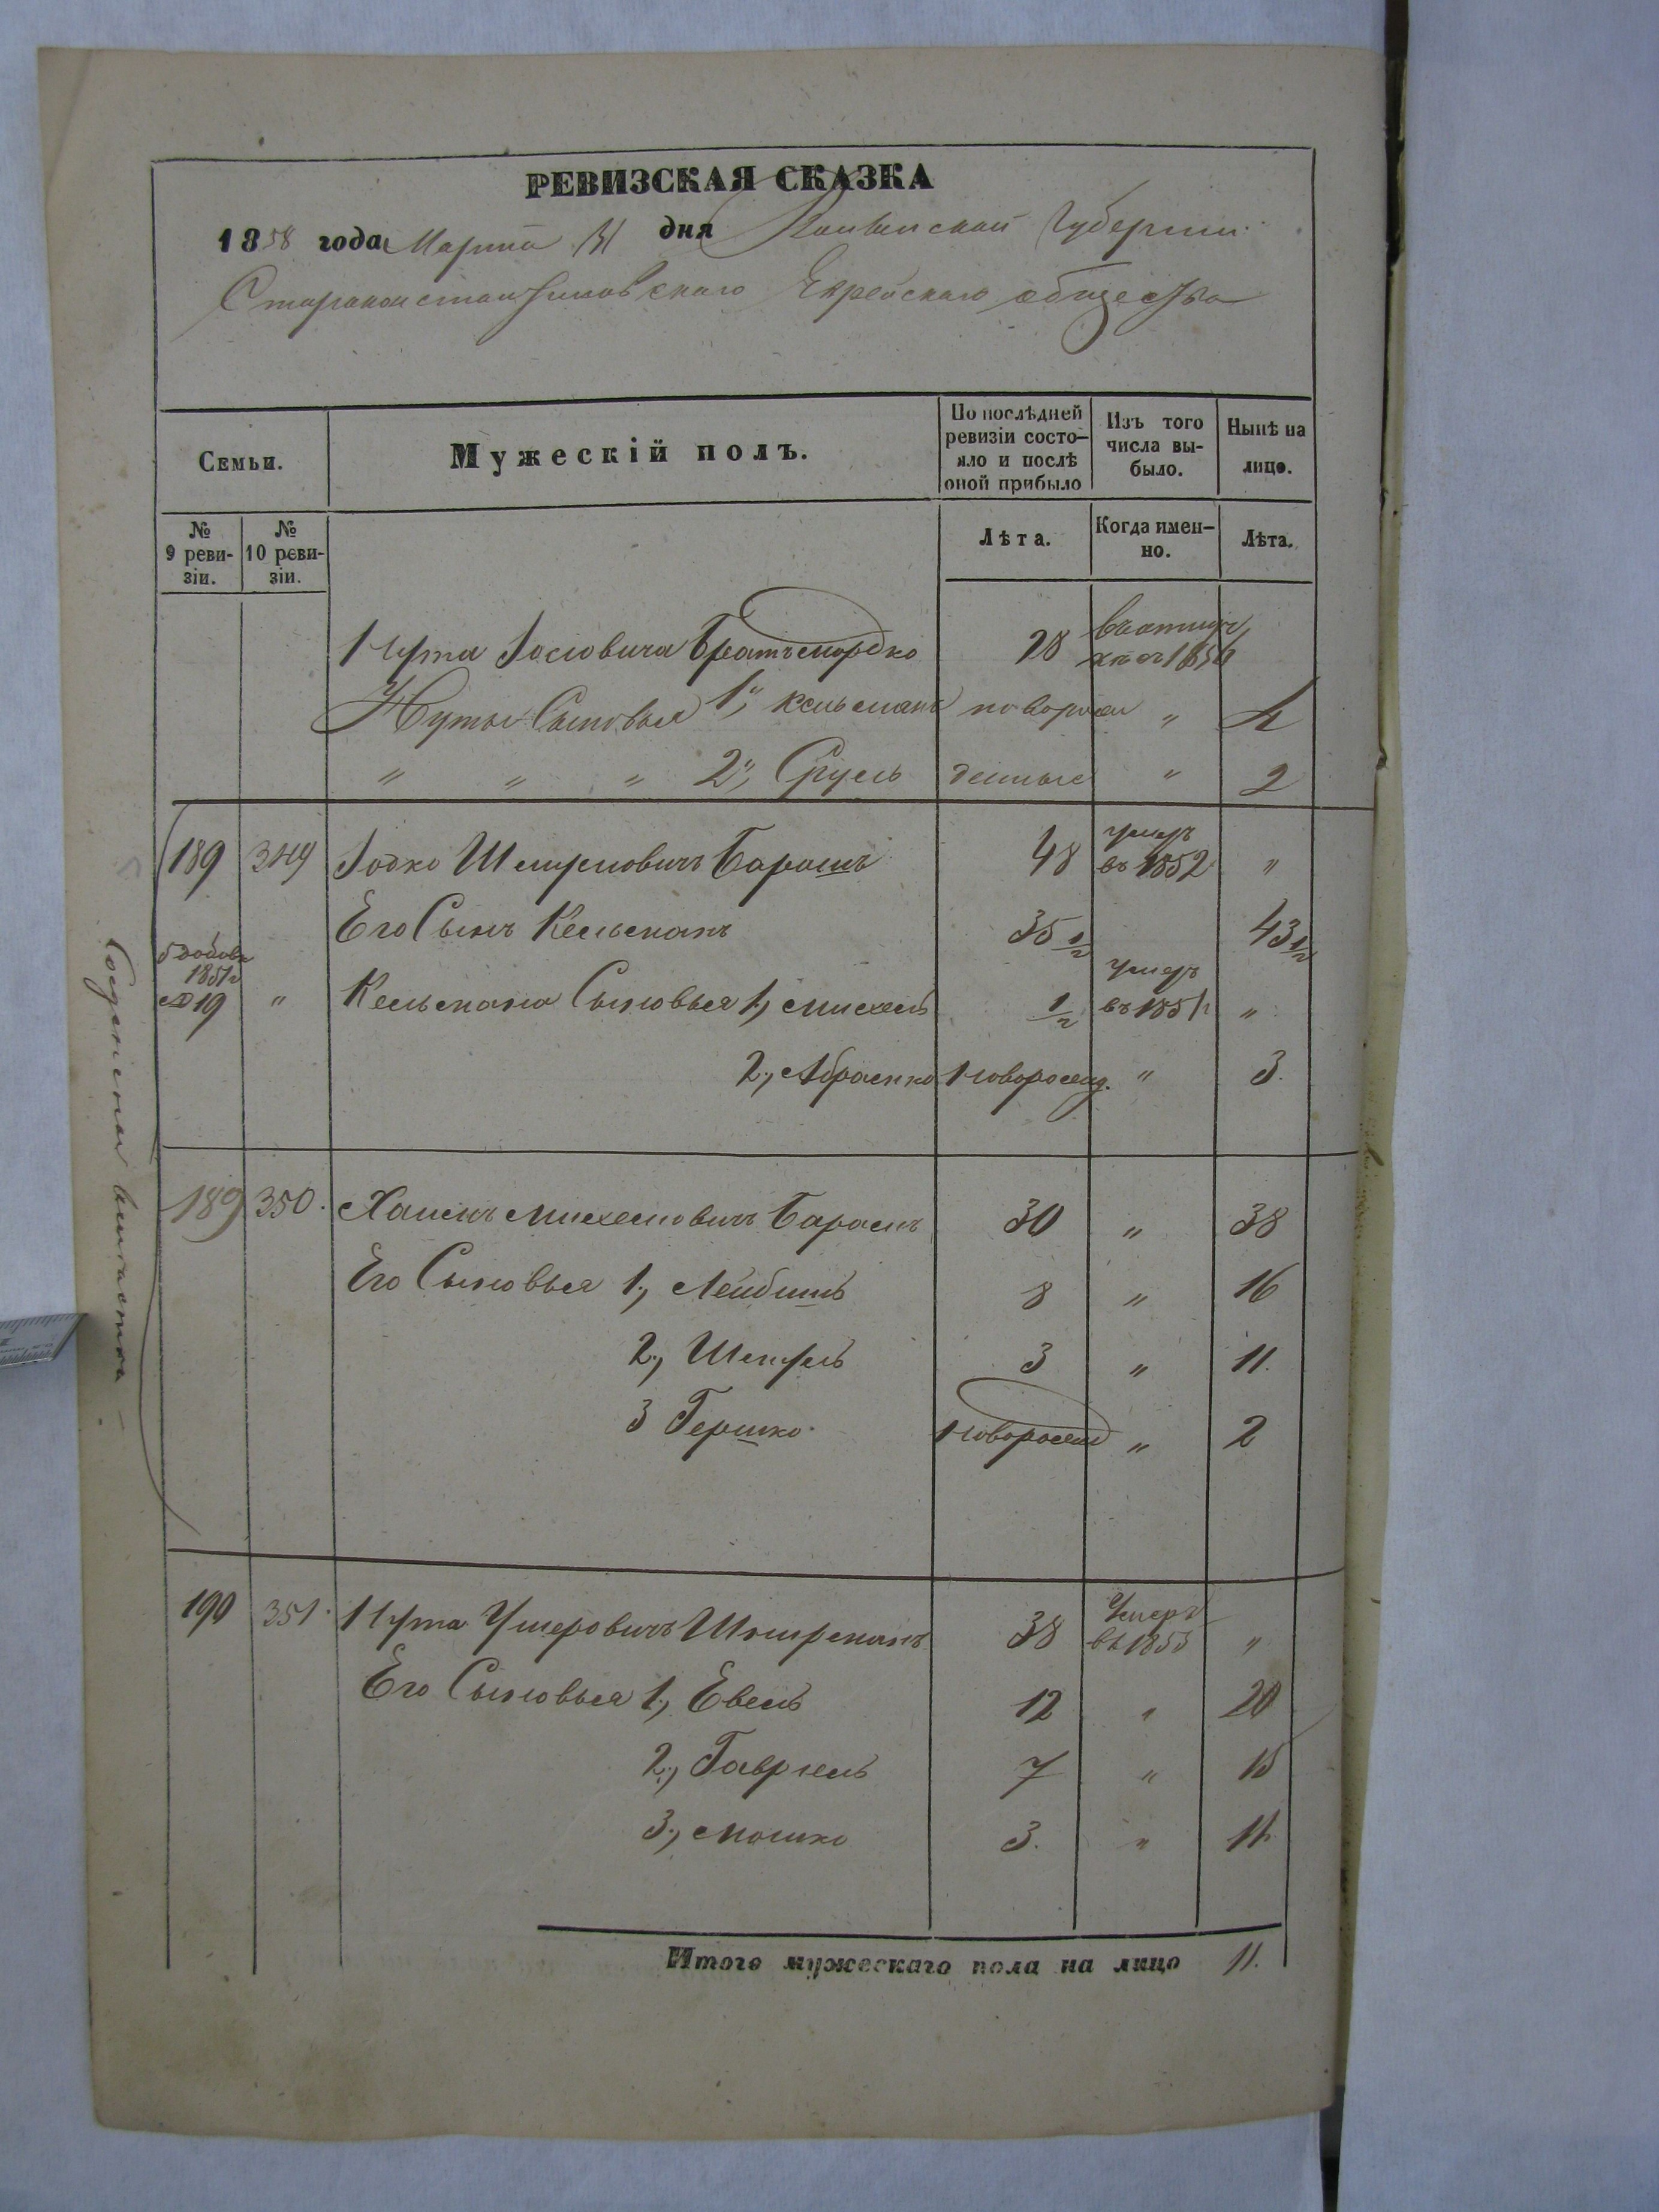 РЕВИЗСКАЯ СКАЗКА
1858 года Марта 31 дня Волынской Губернии
Староконстантиновскаго Еврейскаго общества
Семьи.
Мужескій полъ.
По послѣдней ревизіи состо-
яло и послѣ
оной прибыло
Изъ того
числа вы-
было.
Нынѣ на
лицо.
№
9 реви-
зіи.
№
10 реви-
зіи.
Лѣта.
Когда имен-
но.
Лѣта.
Нута Іосіовича Братъ Мордко 28 1854
Нуты Сыновья 1, Кельманъ новорож „ 4
„ „ „ 2, Сруль денные „ 2
189 349 Іодко Шмулевичъ Барашъ 48 умеръ въ 1852 „
Его Сынъ Кельманъ 35 1/2 43 1/2
1851
№ 19 „ Кельмана Сыновья 1, Михель 1/2 умеръ въ 1854 „
2, Абрамко новорожд. „ 3.
189 350. Хаимъ Михелевичъ Барашъ 30 „ 38
Его Сыновья 1, Лейбишъ 8 „ 16
2, Шмуль 3 „ 11.
3 Гершко. новорожд „ 2
190 351. Нута Ушеровичъ 38 Умеръ въ 1853 „
Его Сыновья 1, Евель 12 „ 20
2, Гавріель 7 „ 15
3, Мошко 3. „ 11.
Итого мужескаго пола на лицо 11.